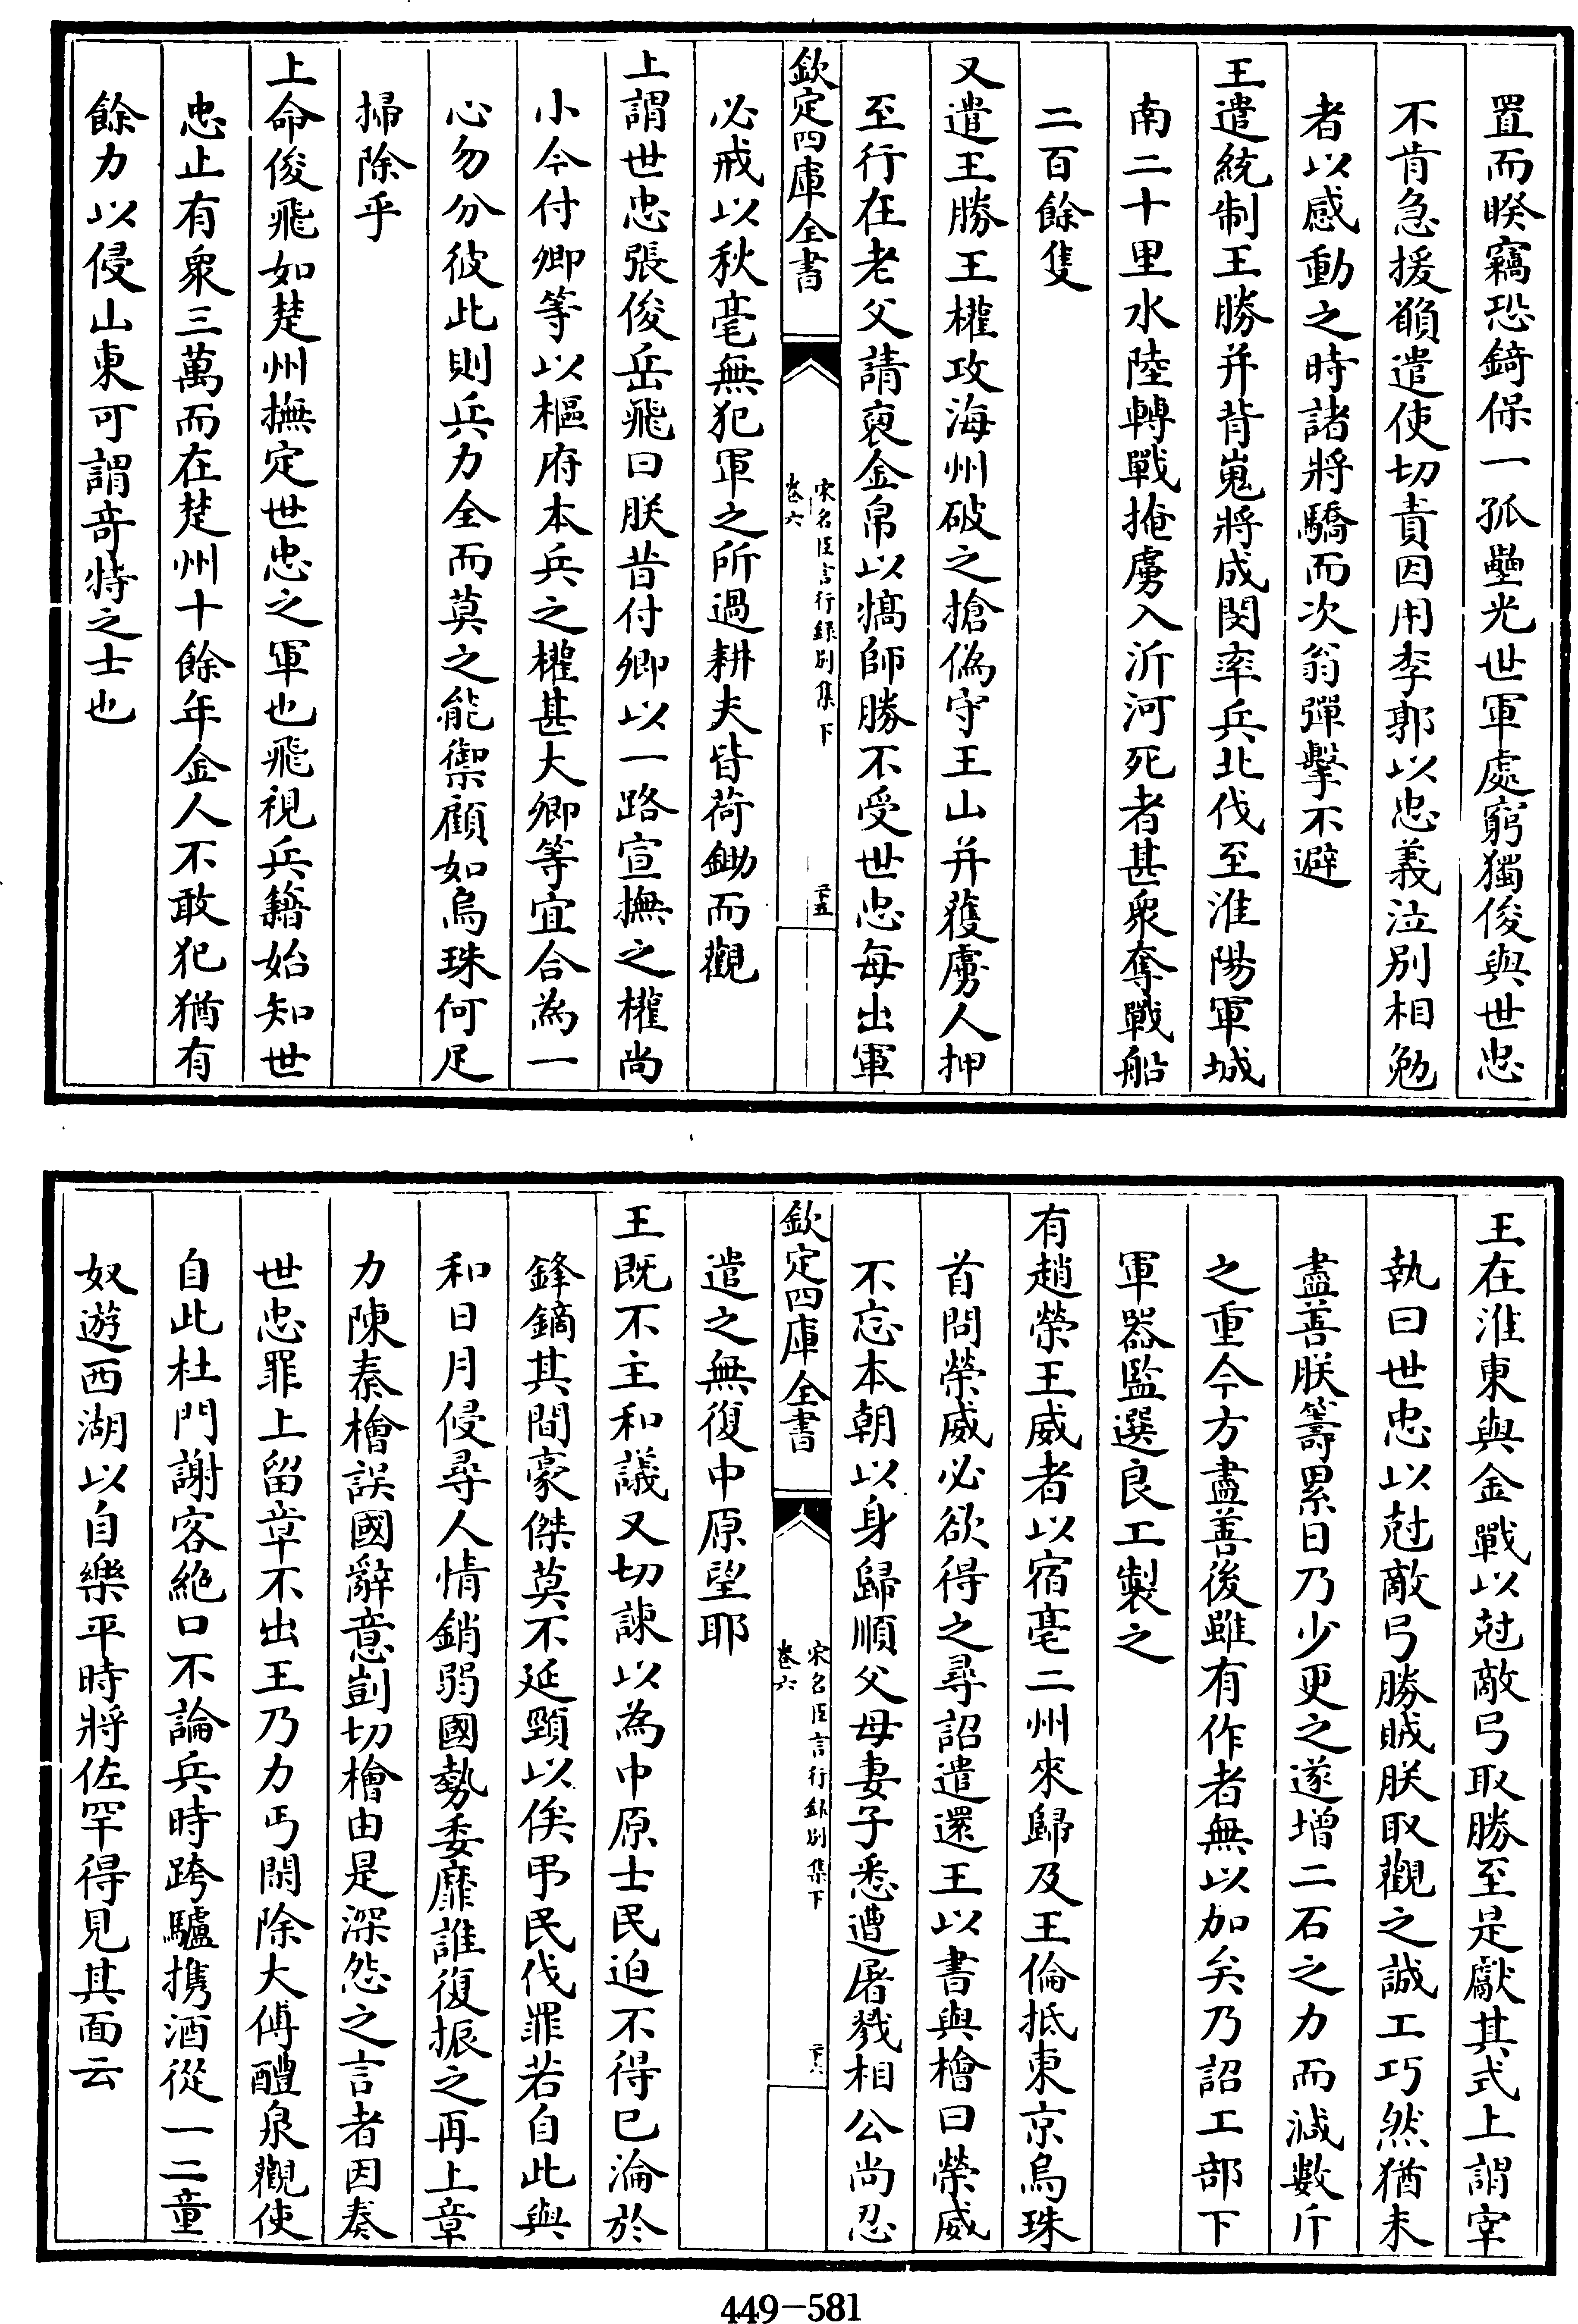 置而睽竊恐錡保一孤壘光世軍處窮獨俊與世忠
不肯急援願遣使切責因用李郭以忠義泣別相勉
者以感動之時諸將驕而次翁彈擊不避
王遣統制王勝并背嵬將成閔率兵北伐至淮陽軍城
南二十里水陸轉戰掩虜入沂河死者甚衆奪戰船
二百餘隻
又遣王勝王權攻海州破之擒偽守王山并獲虜人押
至行在老父請裒金帛以犒師勝不受世忠每出軍
欽定四庫全書
宋名臣言行録别集下
卷六
二十五
必戒以秋毫無犯軍之所過耕夫皆荷鋤而觀
上謂世忠張俊岳飛曰朕昔付卿以一路宣撫之權尚
小今付卿等以樞府本兵之權甚大卿等宜合為一
心勿分彼此則兵力全而莫之能禦顧如烏珠何足
掃除乎
上命俊飛如楚州撫定世忠之軍也飛視兵籍始知世
忠止有衆三萬而在楚州十餘年金人不敢犯猶有
餘力以侵山東可謂奇特之士也
王在淮東與金戰以尅敵弓取勝至是獻其式上謂宰
執曰世忠以尅敵弓勝賊朕取觀之誠工巧然猶未
盡善朕籌累日乃少更之遂增二石之力而減數斤
之重今方盡善後雖有作者無以加矣乃詔工部下
軍器監選良工製之
有趙榮王威者以宿亳二州來歸及王倫抵東京烏珠
首問榮威必欲得之尋詔遣還王以書與檜曰榮威
不忘本朝以身歸順父母妻子悉遭屠戮相公尚忍
欽定四庫全書
宋名臣言行録别集下
卷六
二十六
遣之無復中原望耶
王既不主和議又切諫以為中原士民迫不得已淪於
鋒鏑其間豪傑莫不延頸以俟弔民伐罪若自此與
和日月侵尋人情銷弱國勢委靡誰復振之再上章
力陳秦檜誤國辭意剴切檜由是深怨之言者因奏
世忠罪上留章不出王乃力丐閑除大傅醴泉觀使
自此杜門謝客絶口不論兵時跨驢携酒從一二童
奴遊西湖以自樂平時將佐罕得見其面云
449-581